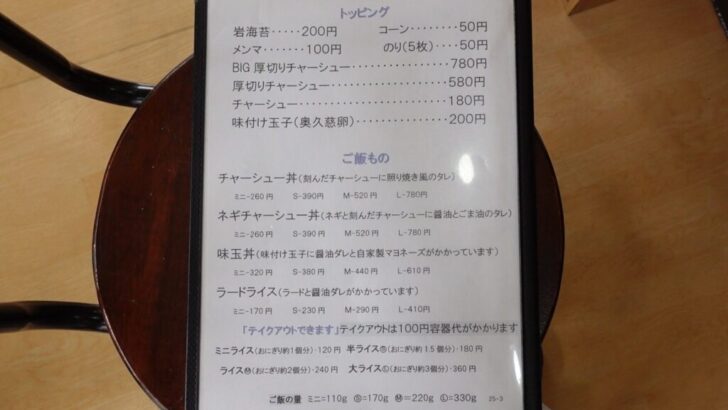 トッピング
岩海苔‥‥‥200円　コーン‥‥‥‥50円
メンマ‥‥‥100円　のり(5枚)‥‥50円
BIG 厚切りチャーシュー‥‥‥‥‥‥780円
厚切りチャーシュー‥‥‥‥‥‥‥‥580円
チャーシュー‥‥‥‥‥‥‥‥‥‥180円
味付け玉子(奥久慈卵)‥‥‥‥‥‥200円
ご飯もの
チャーシュー丼(刻んだチャーシューに照り焼き風のタレ)
ミニ-260円　S-390円　M-520円　L-780円
ネギチャーシュー丼(ネギと刻んだチャーシューに醤油とごま油のタレ)
ミニ-260円　S-390円　M-520円　L-780円
味玉丼(味付け玉子に醤油ダレと自家製マヨネーズがかかっています)
ミニ-320円　S-380円　M-440円　L-610円
ラードライス(ラードと醤油ダレがかかっています)
ミニ-170円　S-230円　M-290円　L-410円
「テイクアウトできます」テイクアウトは100円容器代がかかります
ミニライス(おにぎり約1個分)・120円　半ライスⓈ(おにぎり約1.5個分)・180円
ライスⓂ(おにぎり約2個分)・240円　大ライスⓁ(おにぎり約3個分)・360円
ご飯の量　ミニ=110g　Ⓢ=170g　Ⓜ=220g　Ⓛ=330g　25-3